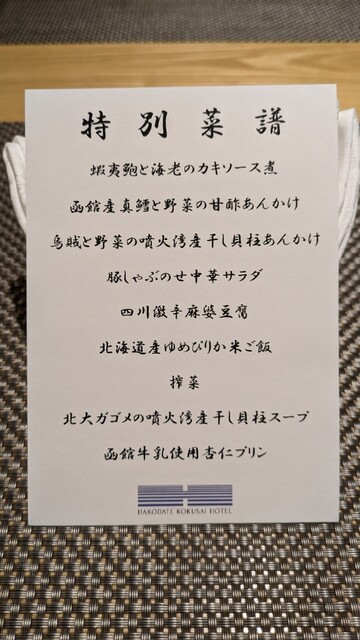 特別菜譜
蝦夷鮑と海老のカキソース煮
函館産真鱈と野菜の甘酢あんかけ
烏賊と野菜の噴火湾産干し貝柱あんかけ
豚しゃぶのせ中華サラダ
四川激辛麻婆豆腐
北海道産ゆめぴりか米ご飯
搾菜
北大ガゴメの噴火湾産干し貝柱スープ
函館牛乳使用杏仁プリン
HAKODATE KOKUSAI HOTEL